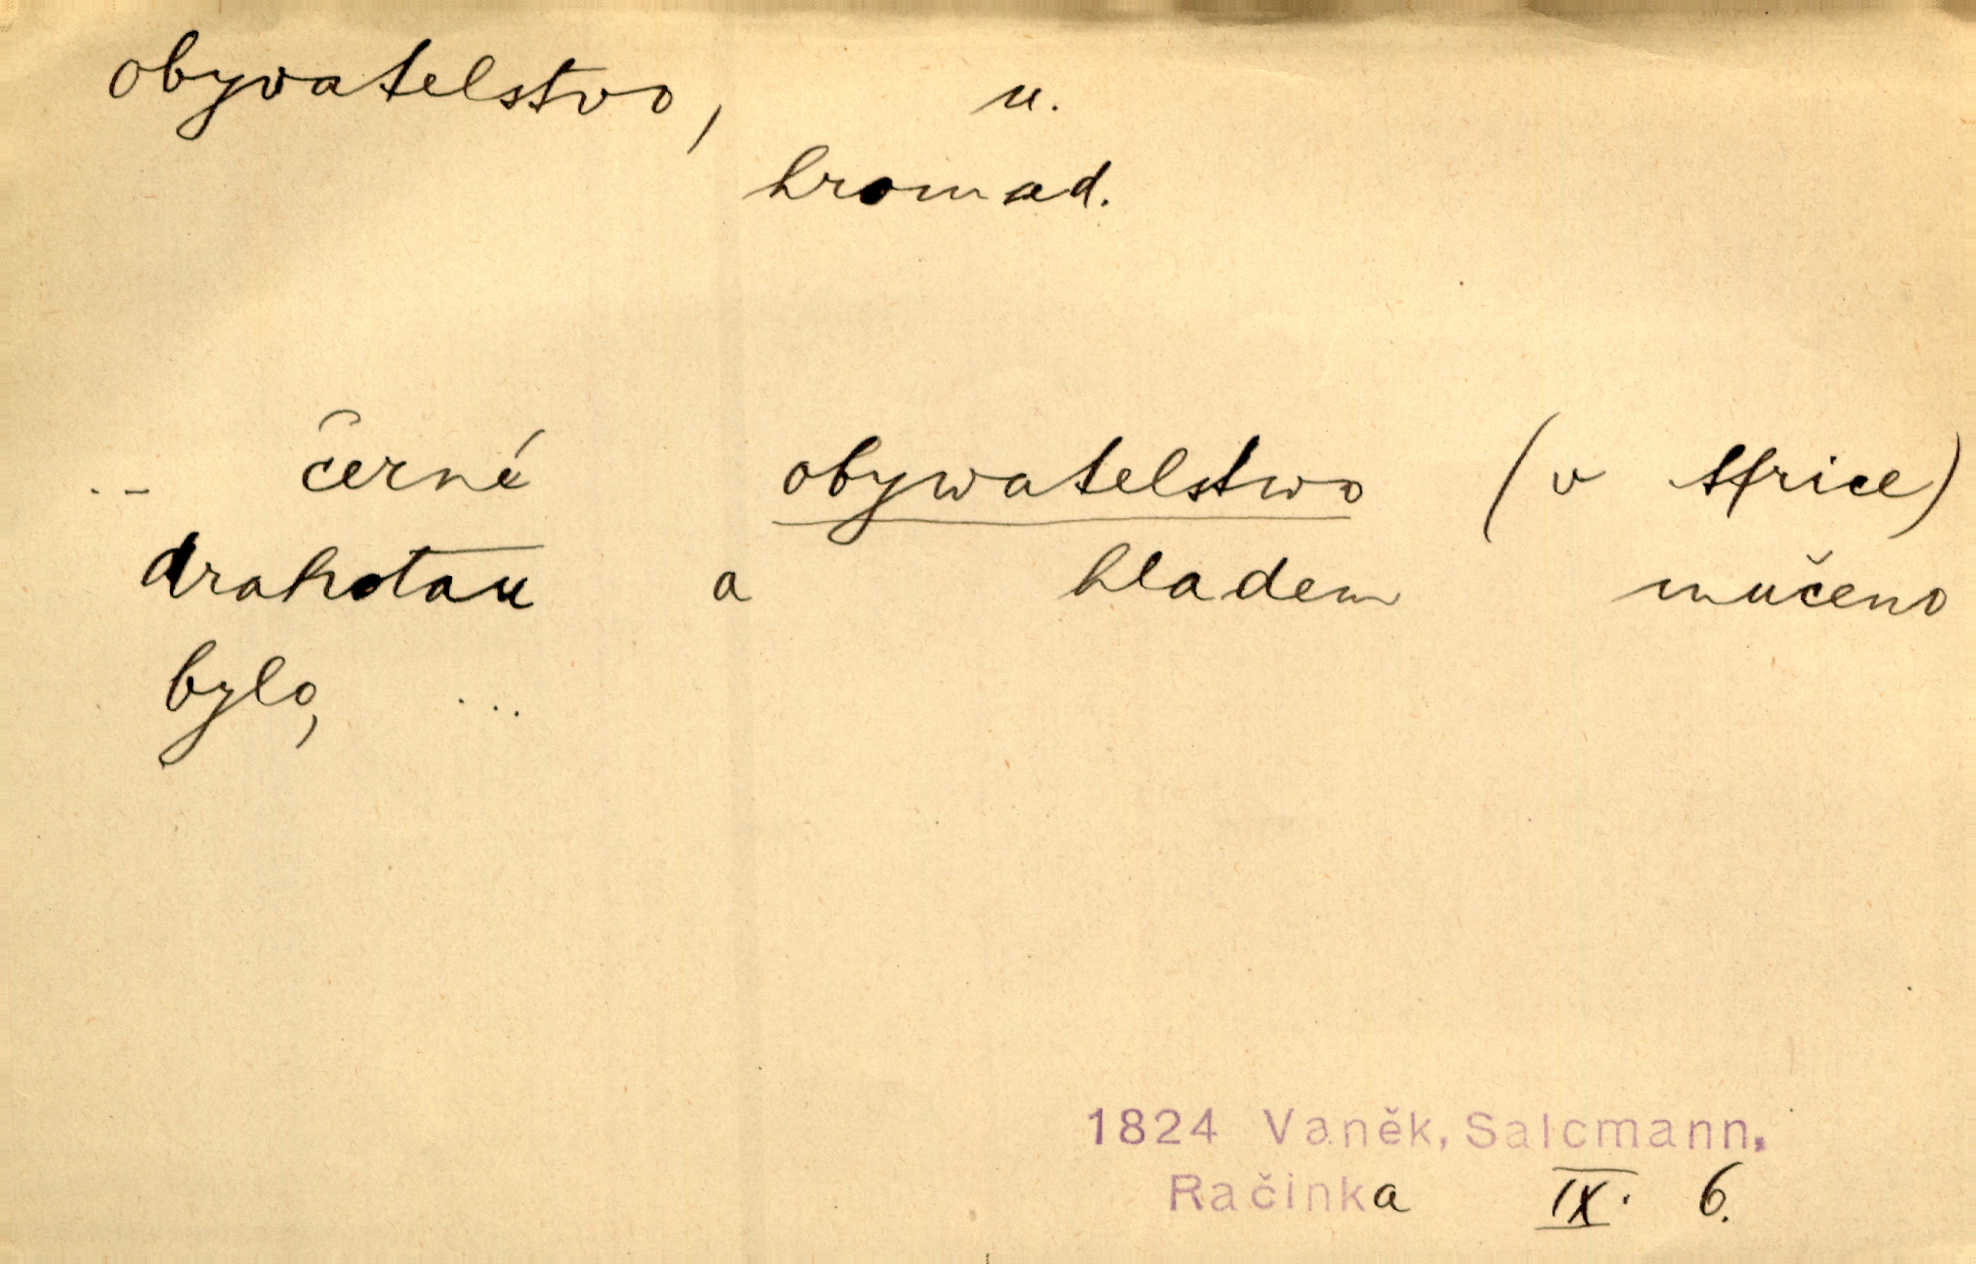 obyvatelstvo, n.
hromad.
... černé obywatelstwo (v Africe)
drahotau a hladem mučeno
bylo, ...
1824 Vaněk, Salcmann,
Račinka IX. 6.